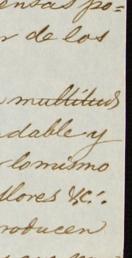 ensas po-
r de los
multitud
dable y
lo mismo
llores &c.
roducen